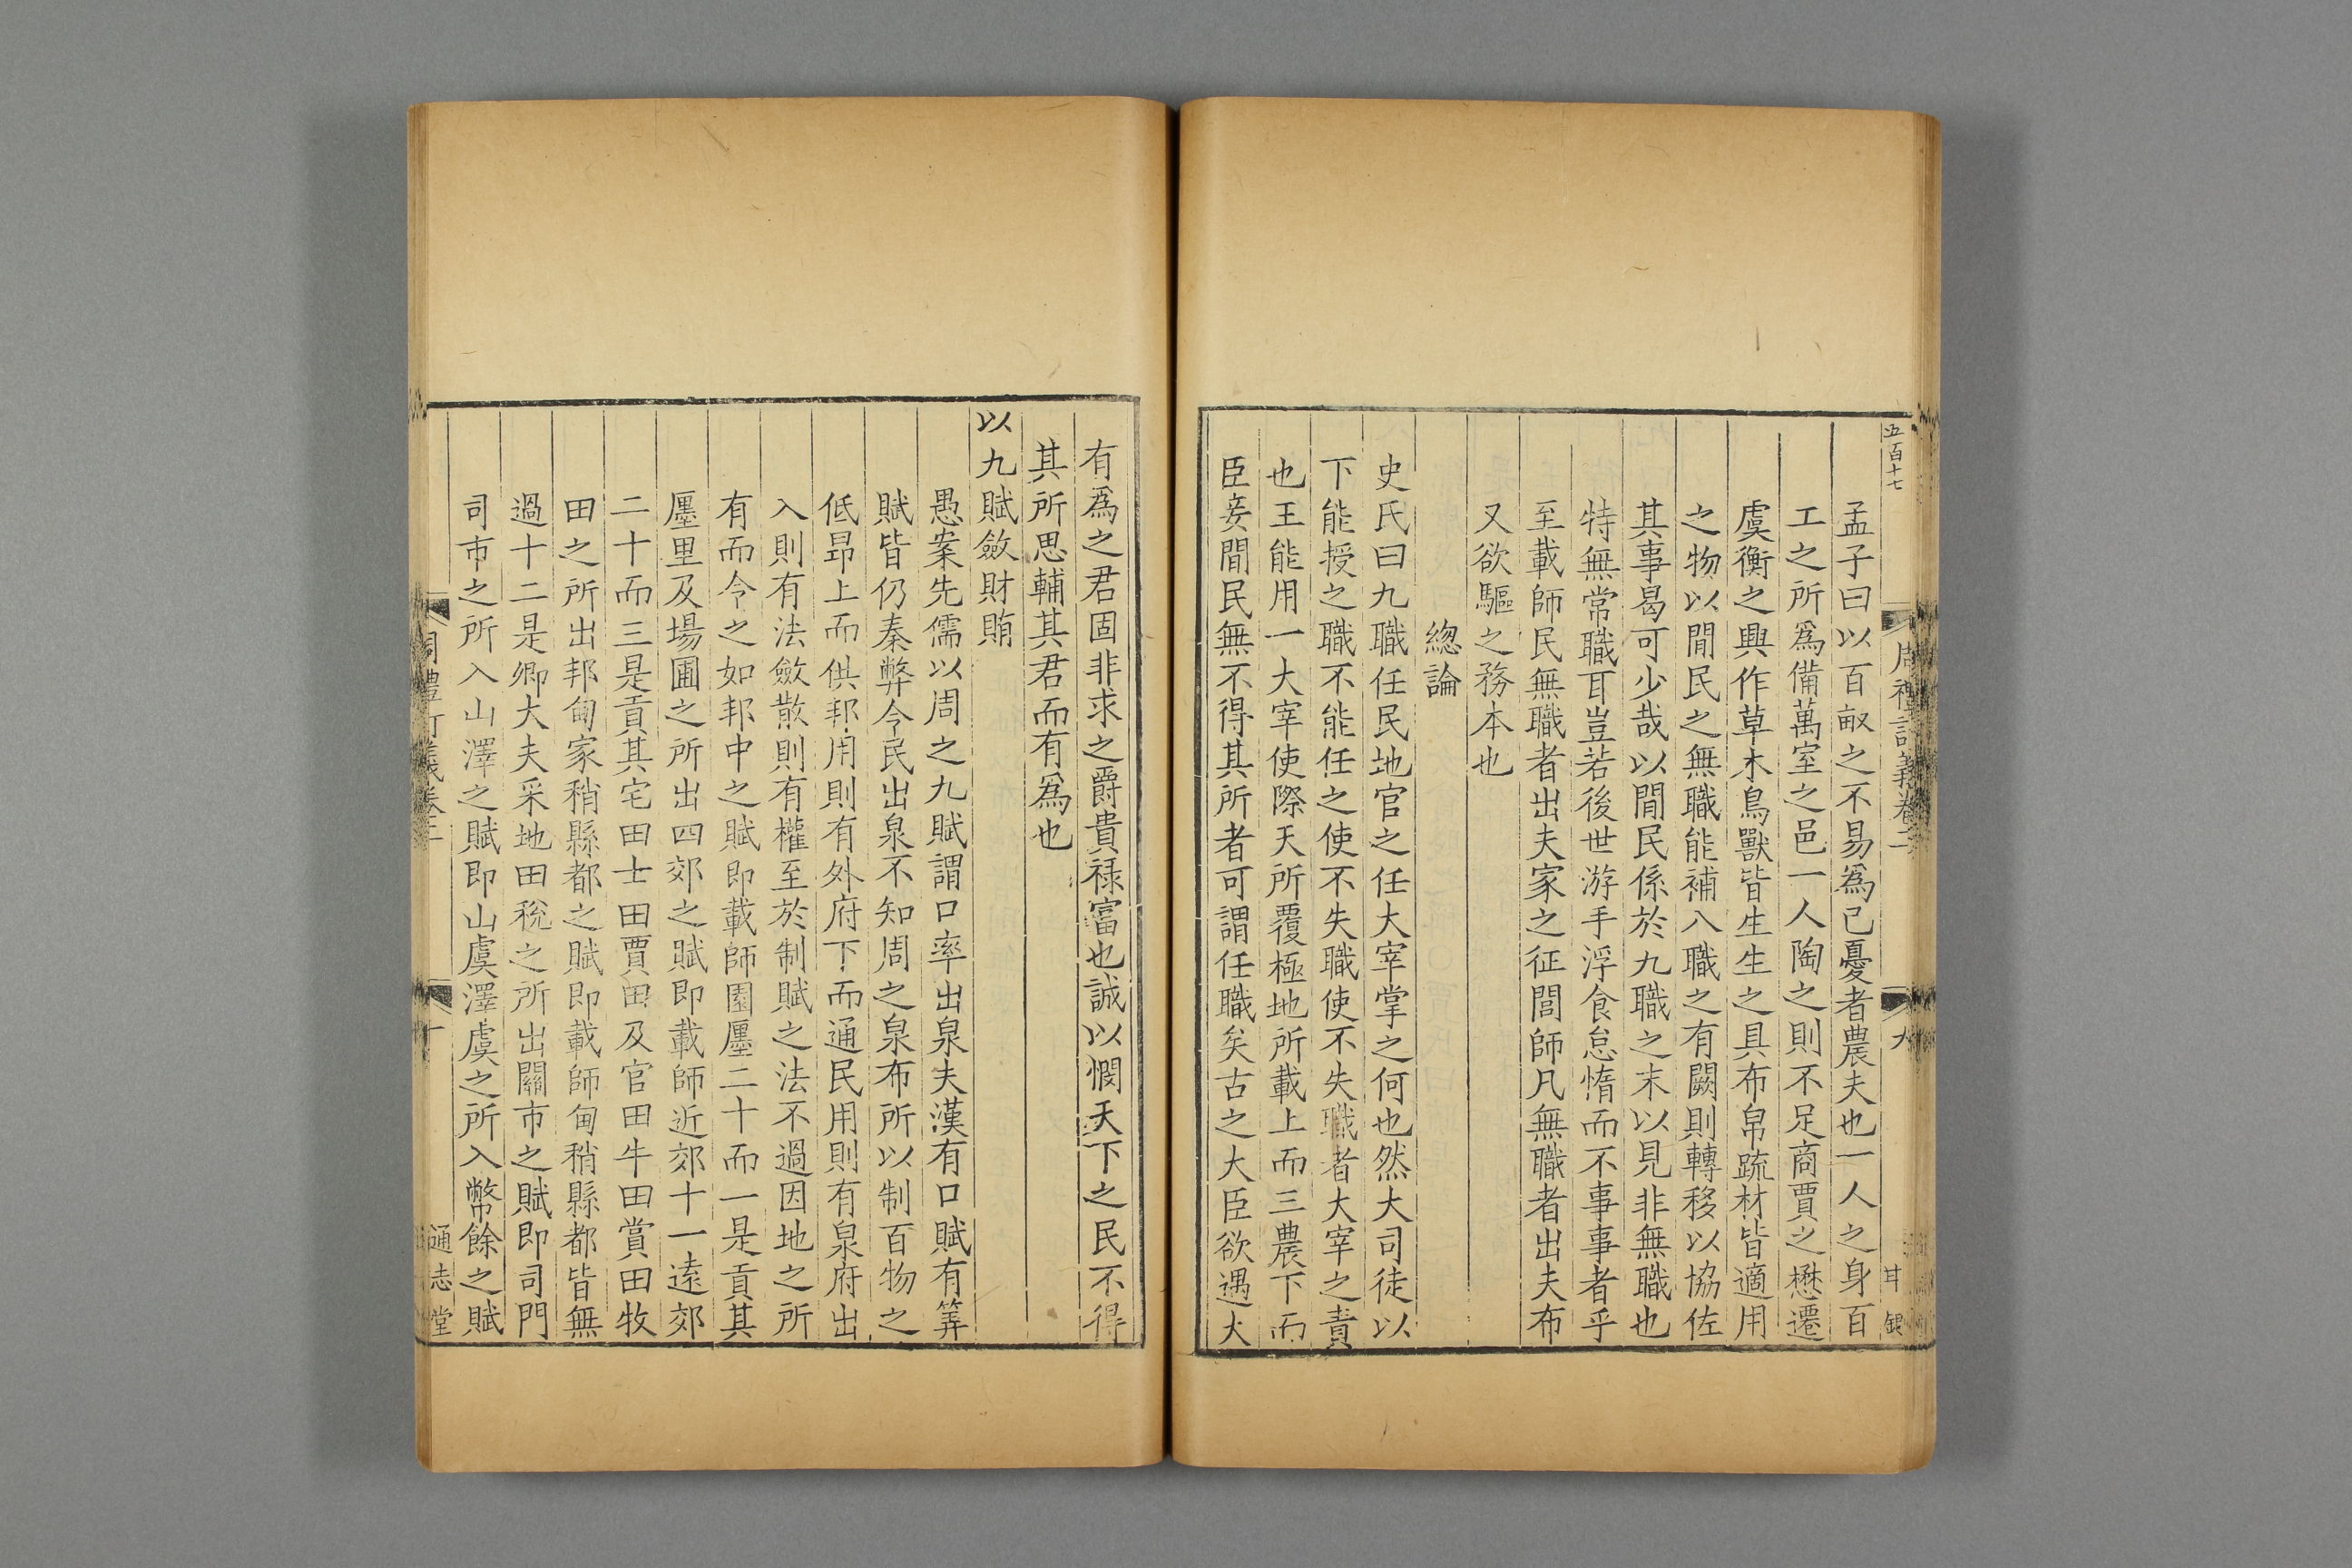 五百十七
周禮訂義卷二
九
甘 銀
孟子曰以百畝之不易爲已憂者農夫也一人之身百
工之所爲備萬室之邑一人陶之則不足商賈之懋遷
虞衡之興作草木鳥獸皆生生之具布帛蔬材皆適用
之物以閒民之無職能補八職之有闕則轉移以協佐
其事曷可少哉以閒民係於九職之末以見非無職也
特無常職耳豈若後世游手浮食怠惰而不事事者乎
至載師民無職者出夫家之征閭師凡無職者出夫布
又欲驅之務本也
總論
史氏曰九職任民地官之任大宰掌之何也然大司徒以
下能授之職不能任之使不失職使不失職者大宰之責
也王能用一大宰使際天所覆極地所載上而三農下而
臣妾閒民無不得其所者可謂任職矣古之大臣欲遇大
有爲之君固非求之爵貴祿富也誠以憫天下之民不得
其所思輔其君而有爲也
以九賦斂財賄
愚案先儒以周之九賦謂口率出泉夫漢有口賦有筭
賦皆仍秦弊令民出泉不知周之泉布所以制百物之
低昂上而供邦用則有外府下而通民用則有泉府出
入則有法斂散則有權至於制賦之法不過因地之所
有而令之如邦中之賦即載師園廛二十而一是貢其
廛里及場圃之所出四郊之賦即載師近郊十一遠郊
二十而三是貢其宅田士田賈田及官田牛田賞田牧
田之所出邦甸家稍縣都之賦即載師甸稍縣都皆無
過十二是卿大夫采地田稅之所出關市之賦即司門
司市之所入山澤之賦即山虞澤虞之所入幣餘之賦
周禮訂義卷二
十
通志堂